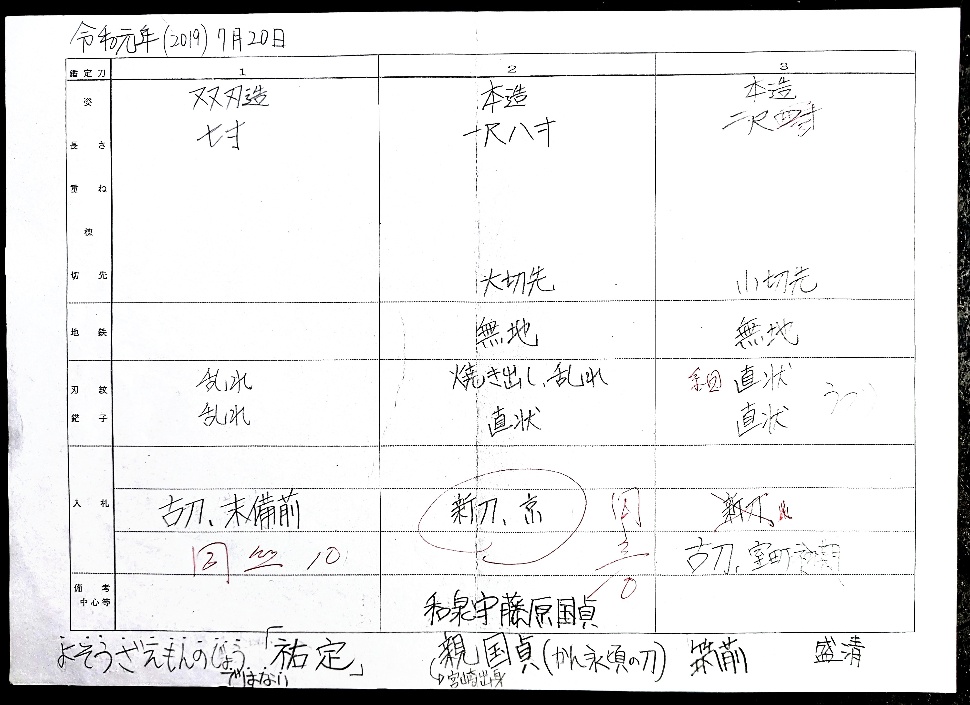 令和元年(2019)7月20日
鑑定刀 1 2 3
姿 双刃造 本造 本造
長さ 七寸 一尺八寸 二尺四寸
重ね
切先 大切先 小切先
地鉄 無地 無地
刃紋 乱れ 焼き出し、乱れ 細 直状
鋩子 乱れ 直状 直状
入札 古刀、末備前 新刀、京 新刀、
10 古刀、室町
備考
中心等
和泉守藤原国貞
よそうざえもんのじょう「祐定」
ではない
親国貞(かん永頃の刀)
宮崎出身
筑前 盛清